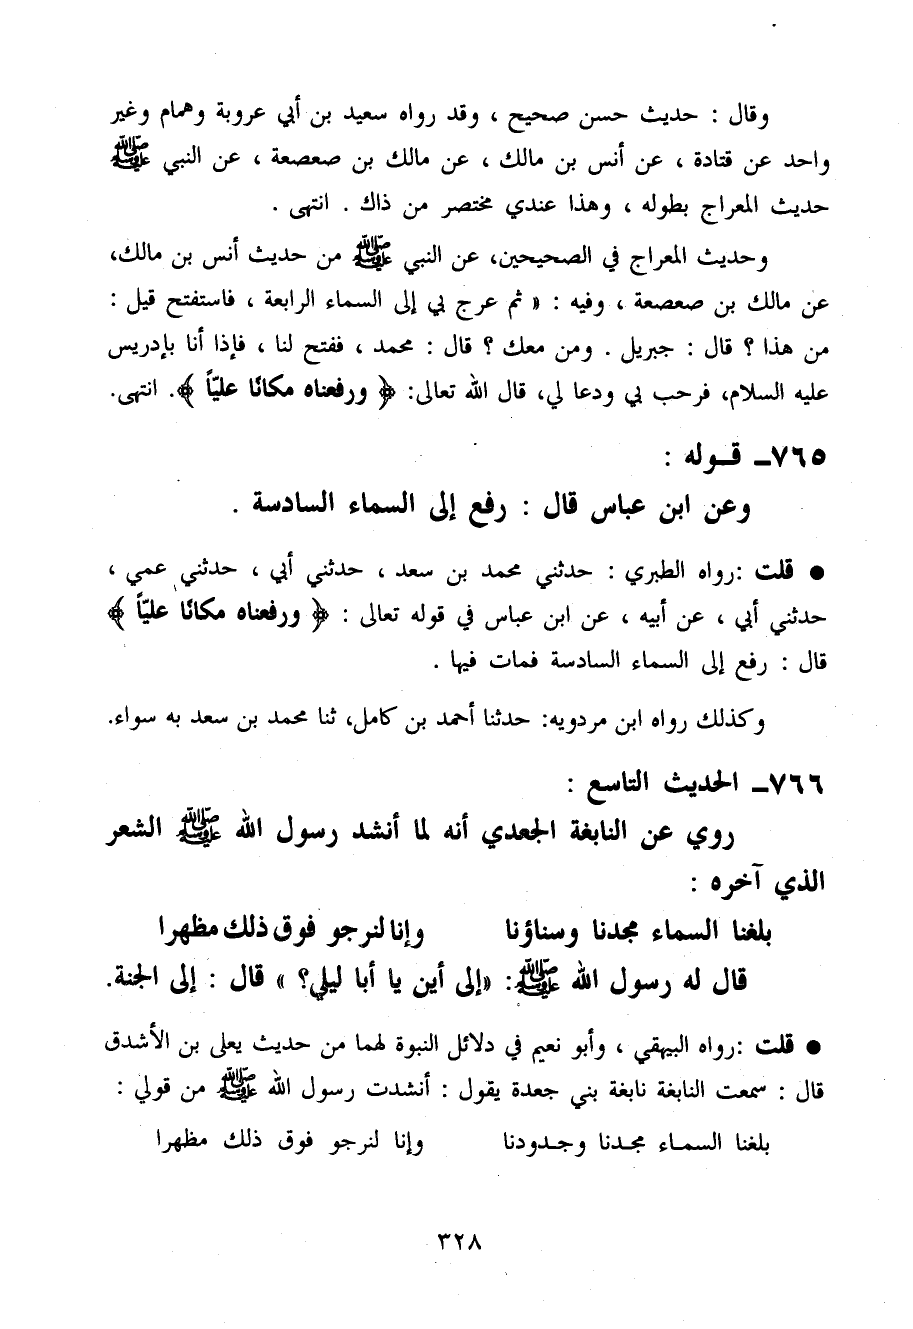 وقال : حديث حسن صحيح ، وقد رواه سعيد بن أبي عروبة وهمام وغير
واحد عن قتادة ، عن أنس بن مالك ، عن مالك بن صعصعة ، عن النبي ﷺ
حديث المعراج بطوله ، وهذا عندي مختصر من ذاك . انتهى .
وحديث المعراج في الصحيحين، عن النبي ﷺ من حديث أنس بن مالك،
عن مالك بن صعصعة ، وفيه : « ثم عرج بي إلى السماء الرابعة ، فاستفتح قيل :
من هذا ؟ قال : جبريل . ومن معك ؟ قال : محمد ، ففتح لنا ، فإذا أنا بإدريس
عليه السلام، فرحب بي ودعا لي، قال الله تعالى: ﴿ ورفعناه مكانًا عليّاً ﴾. انتهى.
٧٦٥ـ قـوله :
وعن ابن عباس قال : رفع إلى السماء السادسة .
● قلت :رواه الطبري : حدثني محمد بن سعد ، حدثني أبي ، حدثني عمي ،
حدثني أبي ، عن أبيه ، عن ابن عباس في قوله تعالى : ﴿ ورفعناه مكانًا عليّاً ﴾
قال : رفع إلى السماء السادسة فمات فيها .
وكذلك رواه ابن مردويه: حدثنا أحمد بن كامل، ثنا محمد بن سعد به سواء.
٧٦٦ـ الحديث التاسع :
روي عن النابغة الجعدي أنه لما أنشد رسول الله ﷺ الشعر
الذي آخره :
بلغنا السماء مجدنا وسناؤنا وإنا لنرجو فوق ذلك مظهرا
قال له رسول الله ﷺ: «إلى أين يا أبا ليلى؟ » قال : إلى الجنة.
● قلت :رواه البيهقي ، وأبو نعيم في دلائل النبوة لهما من حديث يعلى بن الأشدق
قال : سمعت النابغة نابغة بني جعدة يقول : أنشدت رسول الله ﷺ من قولي :
بلغنا السمـاء مجـدنا وجـدودنا وإنا لنرجو فوق ذلك مظهرا
٣٢٨